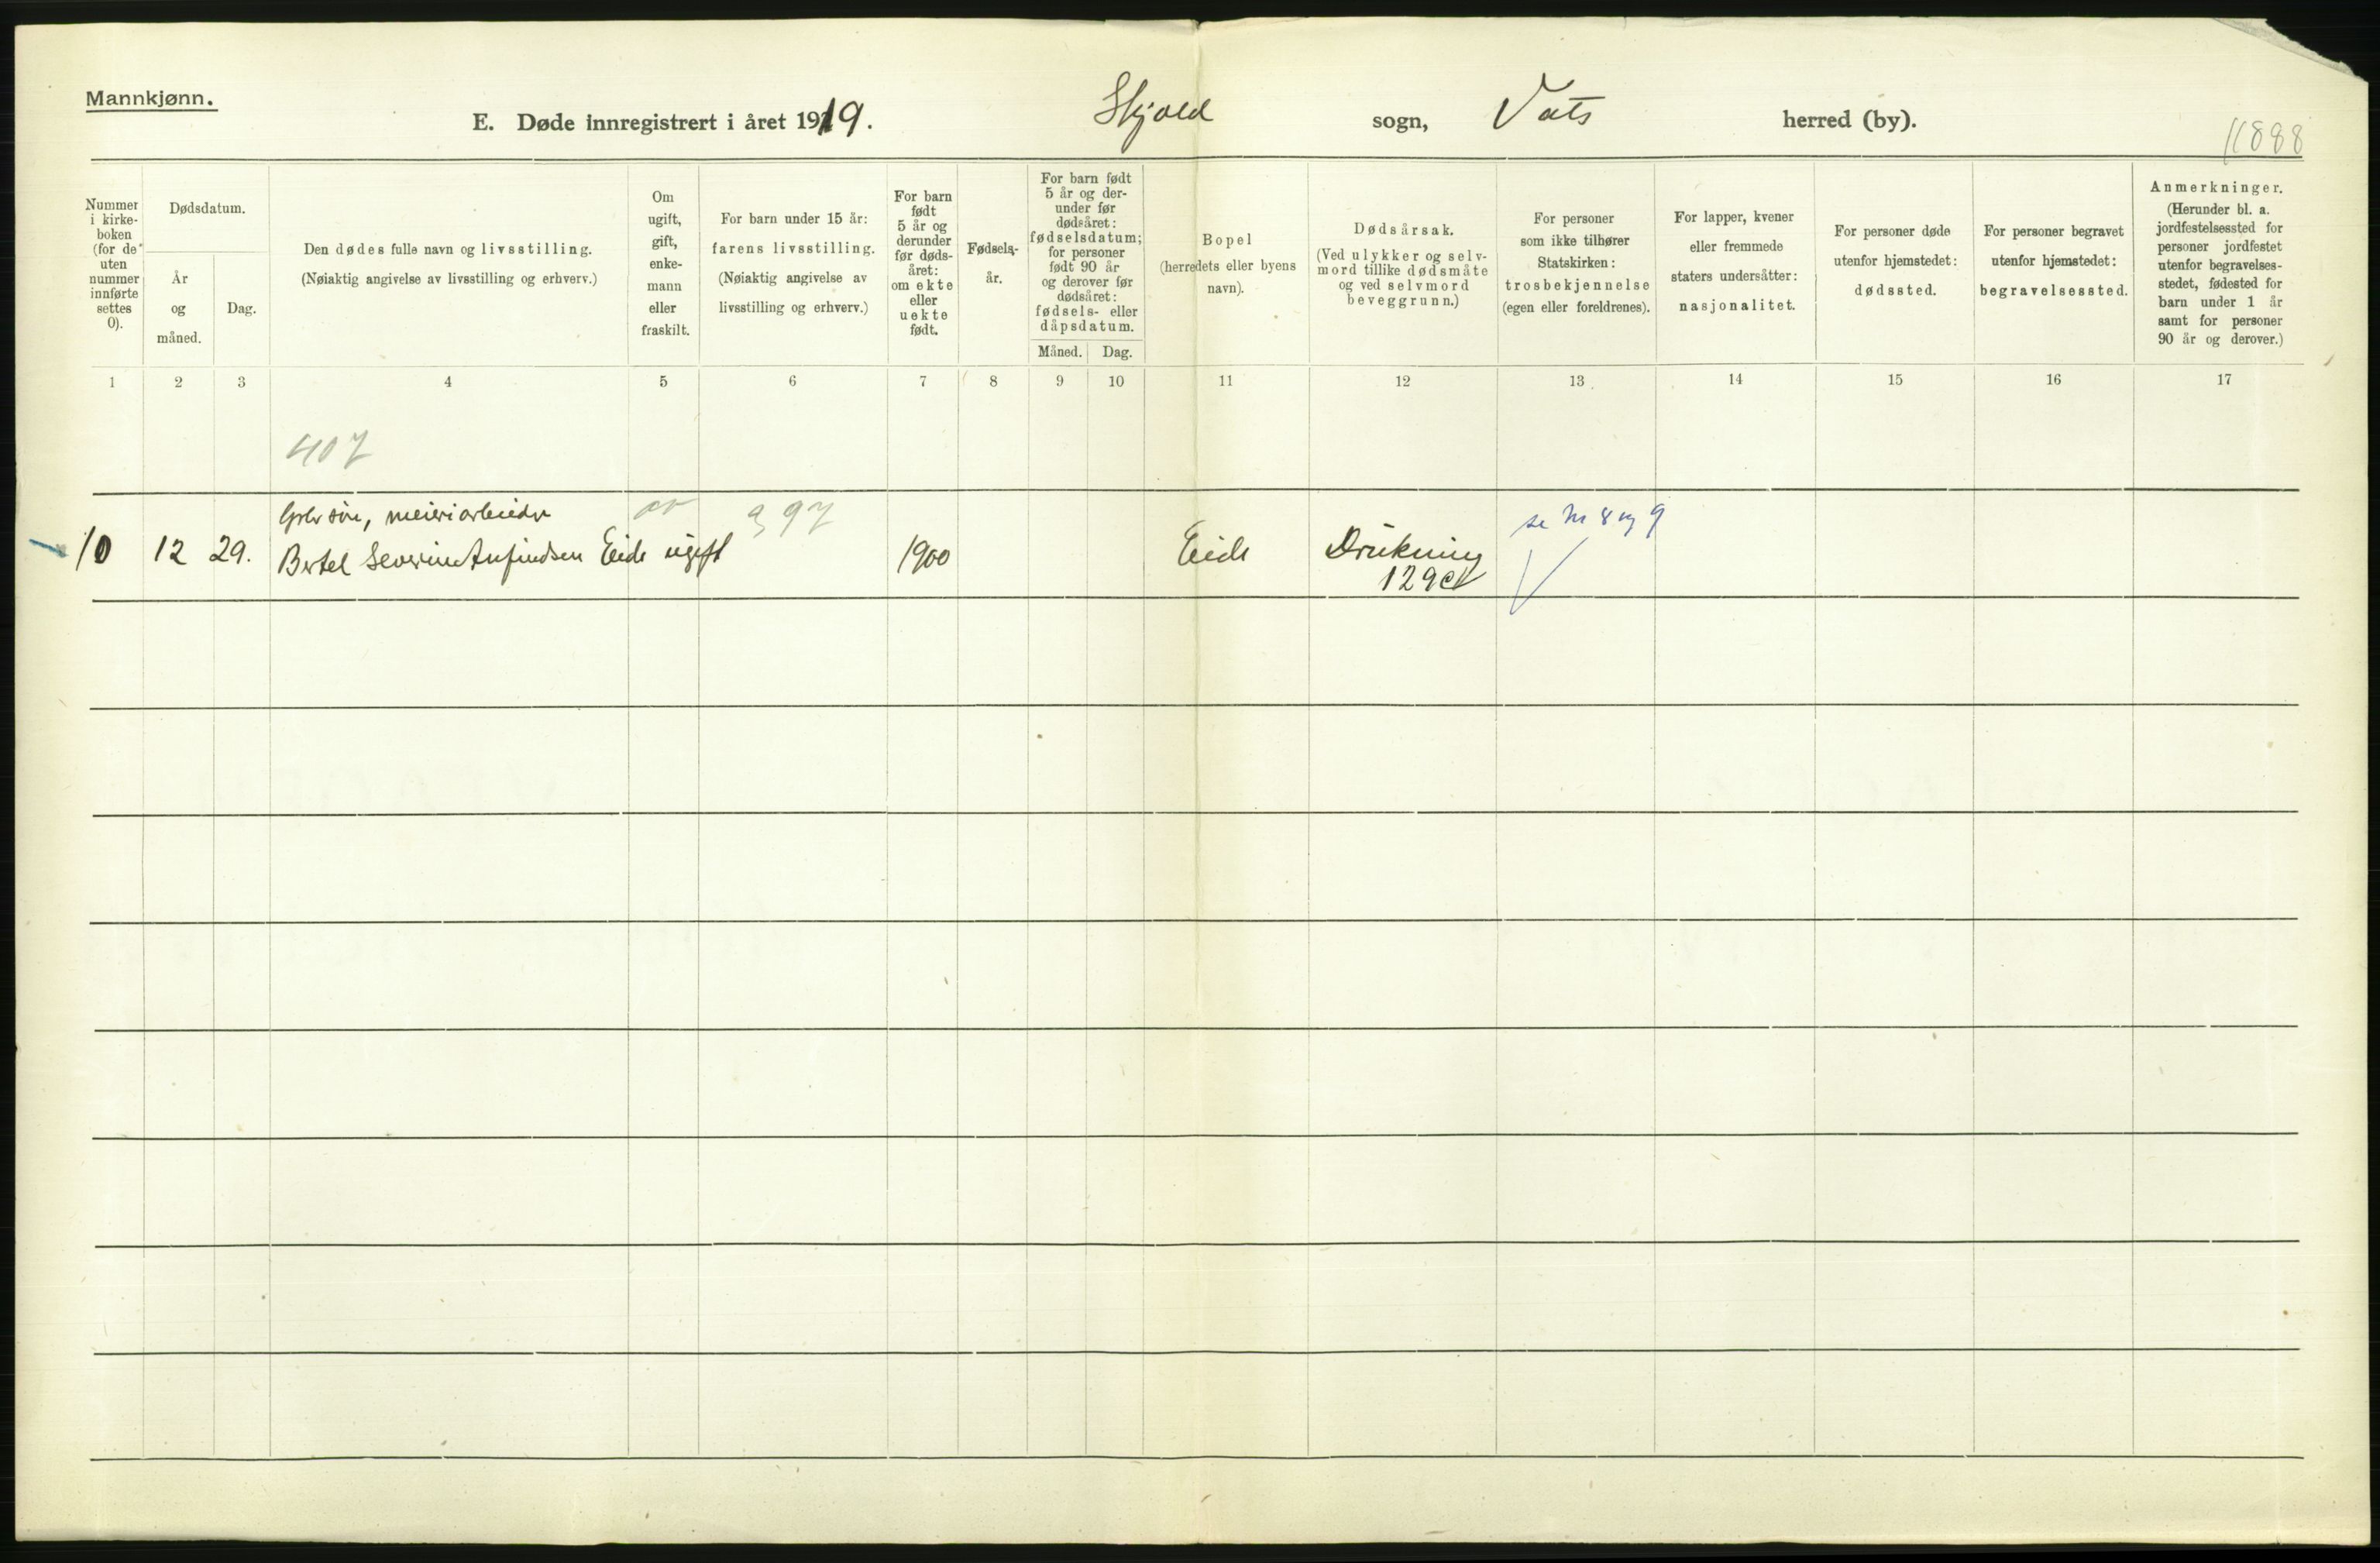 Mannkjønn.
E. Døde innregistrert i året 1919. Skjold sogn, Vats herred (by).
11888
Nummer i kirke-boken (for de uten nummer innførte settes 0).
Dødsdatum.
År og måned.
Dag.
Den dødes fulle navn og livsstilling.
(Nøiaktig angivelse av livsstilling og erhverv.)
Om ugift, gift, enke-mann eller fraskilt.
For barn under 15 år: farens livsstilling.
(Nøiaktig angivelse av livsstilling og erhverv.)
For barn født 5 år og derunder før døds-året: om ekte eller uekte født.
Fødsels-år.
For barn født 5 år og der-under før dødsåret: fødselsdatum; for personer født 90 år og derover før dødsåret: fødsels- eller dåpsdatum.
Måned. Dag.
Bopel (herredets eller byens navn).
Dødsårsak.
(Ved ulykker og selv-mord tillike dødsmåte og ved selvmord beveggrunn.)
For personer som ikke tilhører Statskirken: trosbekjennelse (egen eller foreldrenes).
For lapper, kvener eller fremmede staters undersåtter: nasjonalitet.
For personer døde utenfor hjemstedet: dødssted.
For personer begravet utenfor hjemstedet: begravelsessted.
Anmerkninger.
(Herunder bl. a. jordfestelsessted for personer jordfestet utenfor begravelses-stedet, fødested for barn under 1 år samt for personer 90 år og derover.)
1 2 3 4 5 6 7 8 9 10 11 12 13 14 15 16 17
407
søn, meieriarbeider 397 se nr 8 og 9
10 12 29. Bertel Severin Anfindsen Eide ugift 1900 Eide Drukning
129